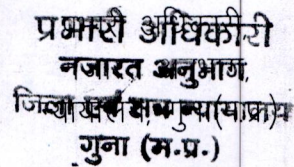 प्रभारी अधिकारी
नजारत अनुभाग,
जिला
गुना (म.प्र.)